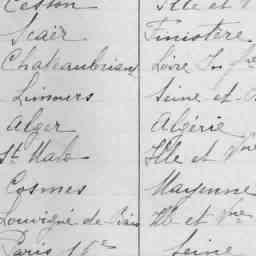 Cesson Ille et V
Scaër Finistère
Chateaubriant Loire Infre
Limmers Seine et
Alger Algérie
St Malo Ille et Vne
Cosmes Mayenne
Louvigné de Bais Ille et Vne
Paris 16e Seine